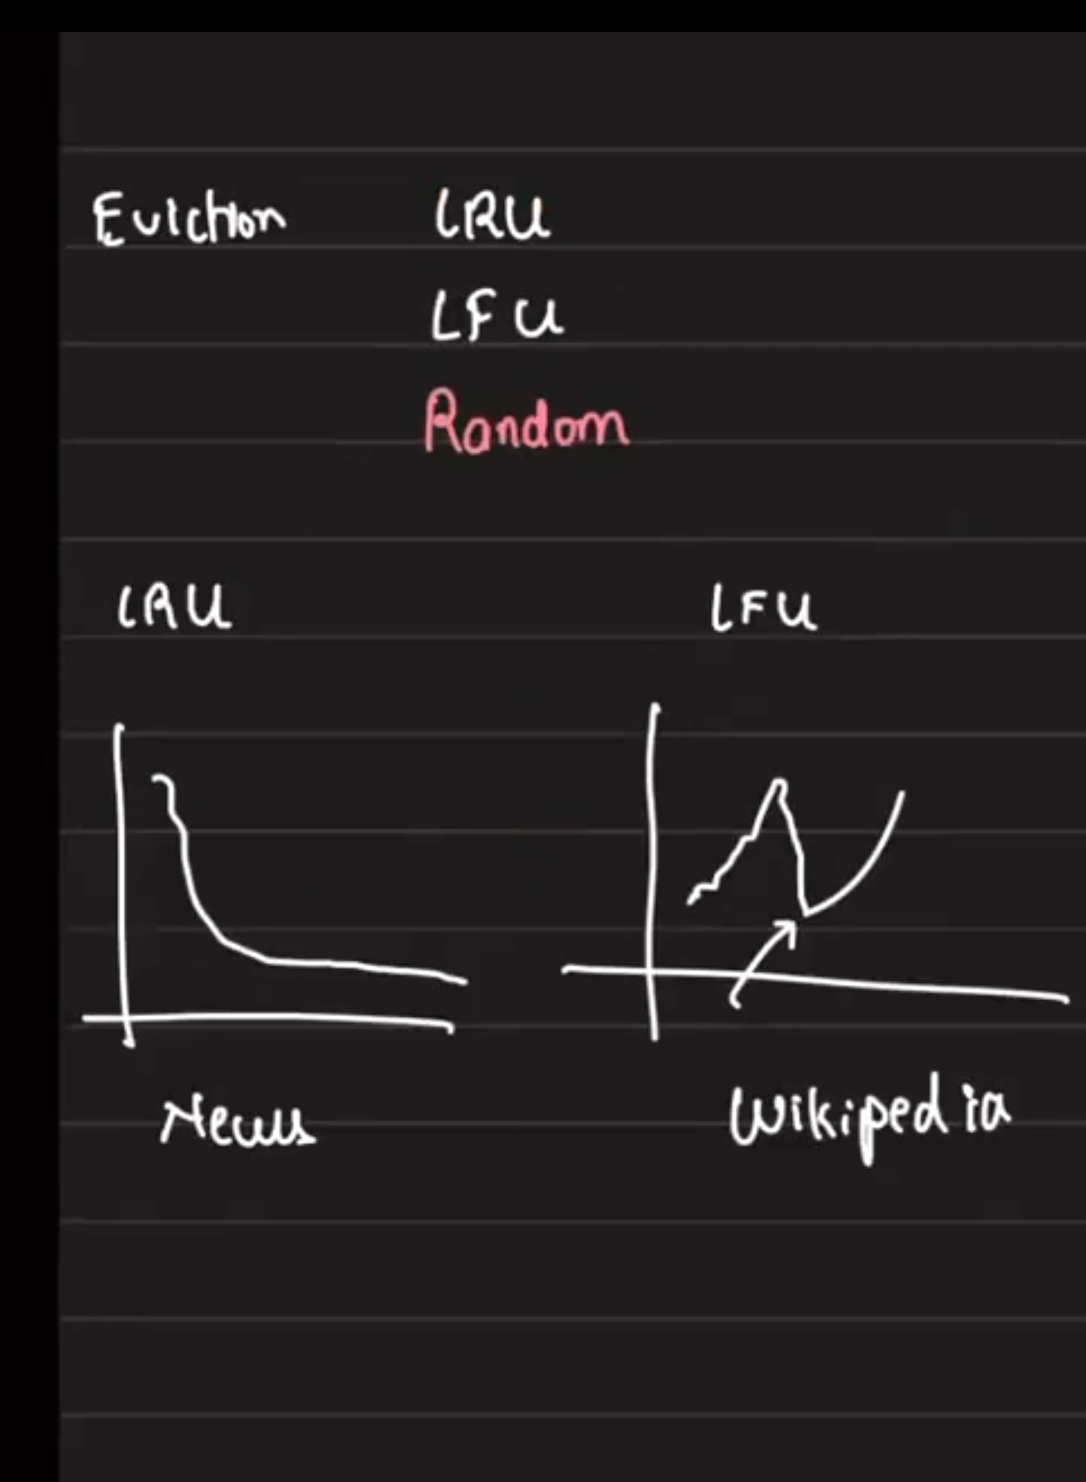 Eviction LRU
LFU
Random
LRU LFU
News Wikipedia